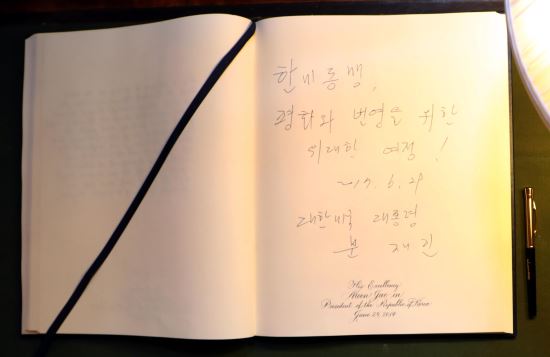 한미동맹,
평화와 번영을 위한
위대한 여정!
2017. 6. 28
대한미국 대통령
문 재 인
His Excellency
Moon Jae-in
President of the Republic of Korea
June 28, 2017